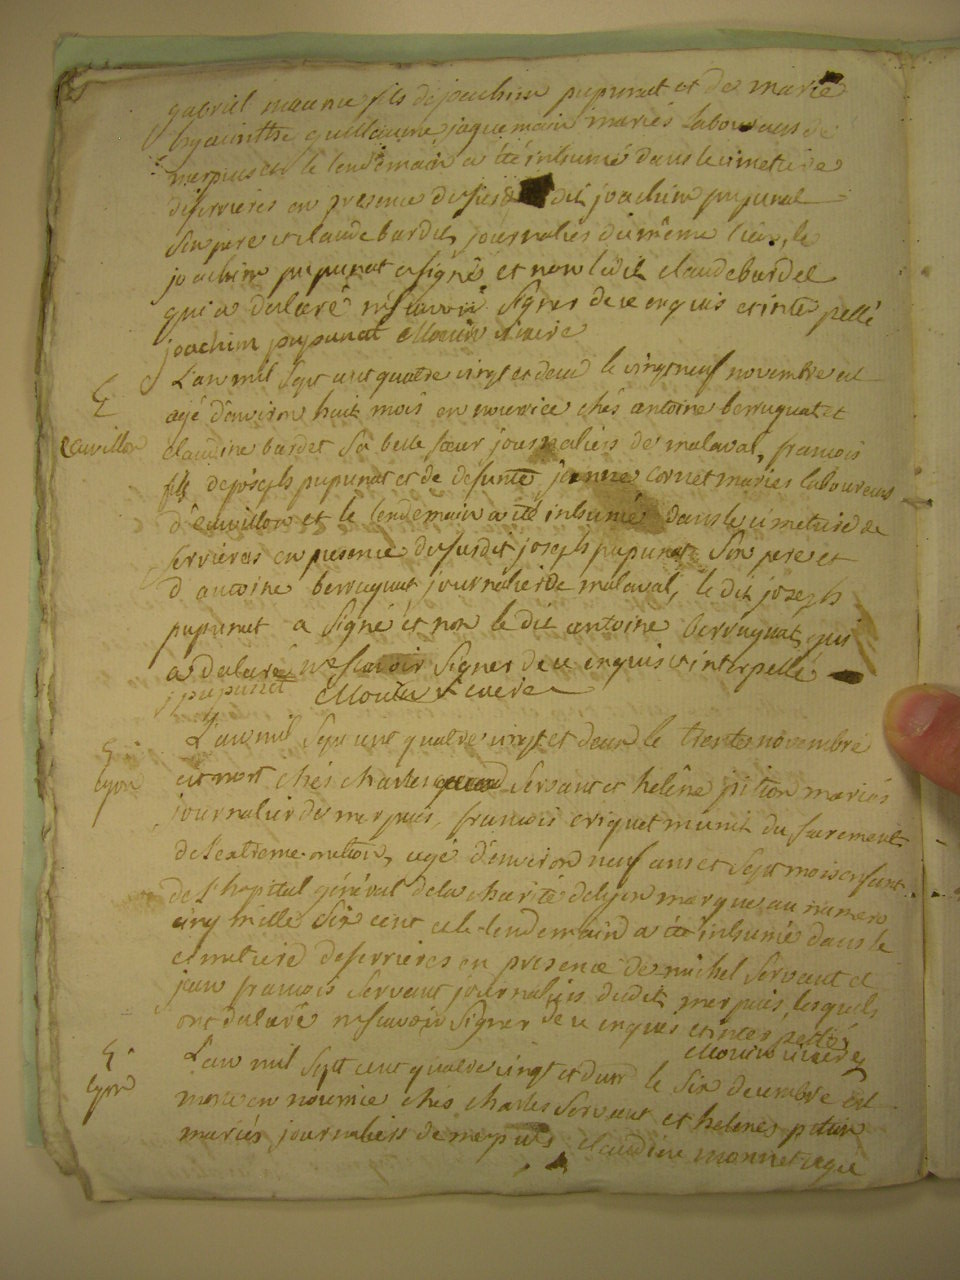 gabriel fils de joachim pupunat et de marie
hyacinthe guillaume jaquemain mariés laboureurs de
merpuis et le lendemain a été inhumé dans le cimetiere
de serrieres en presence du susdit joachim pupunat
son pere et claude bardet journalier du même lieu, le
joachim pupunat a signé et non ledit claude bardel
qui a dalaré ne scavoir signer de ce enquis et inter pellé
joachim pupunat Moulin vicaire
L'an mil sept cent quatre vingt et deux le vingt neuf novembre est
agé d'environ huit mois en nourrice chés antoine berruquat et
ecuvillon claudine bardet sa belle sœur journaliers de malaval, francois
fils de joseph pupunat et de defunte jeanne cornet mariés laboureurs
d'ecuvillon et le lendemain a été inhumé dans le cimetiere de
serrieres en presence du susdit joseph pupunat son pere et
d'antoine berruquat journalier de malaval, le dit joseph
pupunat a signé et non le dit antoine berruquat, qui
a dalaré ne scavoir signer de ce enquis et interpellé
j pupunat Moulin vicaire
L'an mil sept cent quatre vingt et deux le trente novembre
Lyon est mort chés charles servant et helêne pition mariés
journalier de merpuis, francois criquet munit du sacrement
de l'extreme onction, agé d'environ neuf ans et sept mois enfant
de l'hopital général de la charité de lyon marque au numero
cinq mille six cent et le lendemain a été inhumé dans le
cimetiere de serrieres en presence de michel servant et
jean francois servant journaliers dudit merpuis, lesquels
ont dalaré ne scavoir signer de ce enquis et inter pellés
Moulin vicaire
L'an mil sept cent quatre vingt et deux le six decembre est
Lyon mort en nourrice chés charles servant et helene pition
mariés journaliers de merpuis, claudine monnet agé